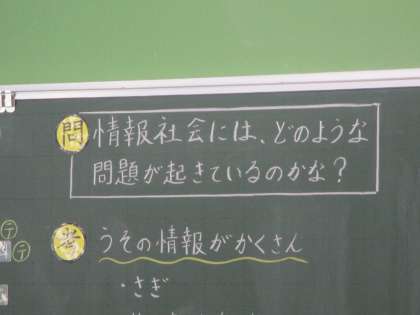 問 情報社会には、どのような
問題が起きているのかな?
考 うその情報がかくさん
・さぎ
テ
テ